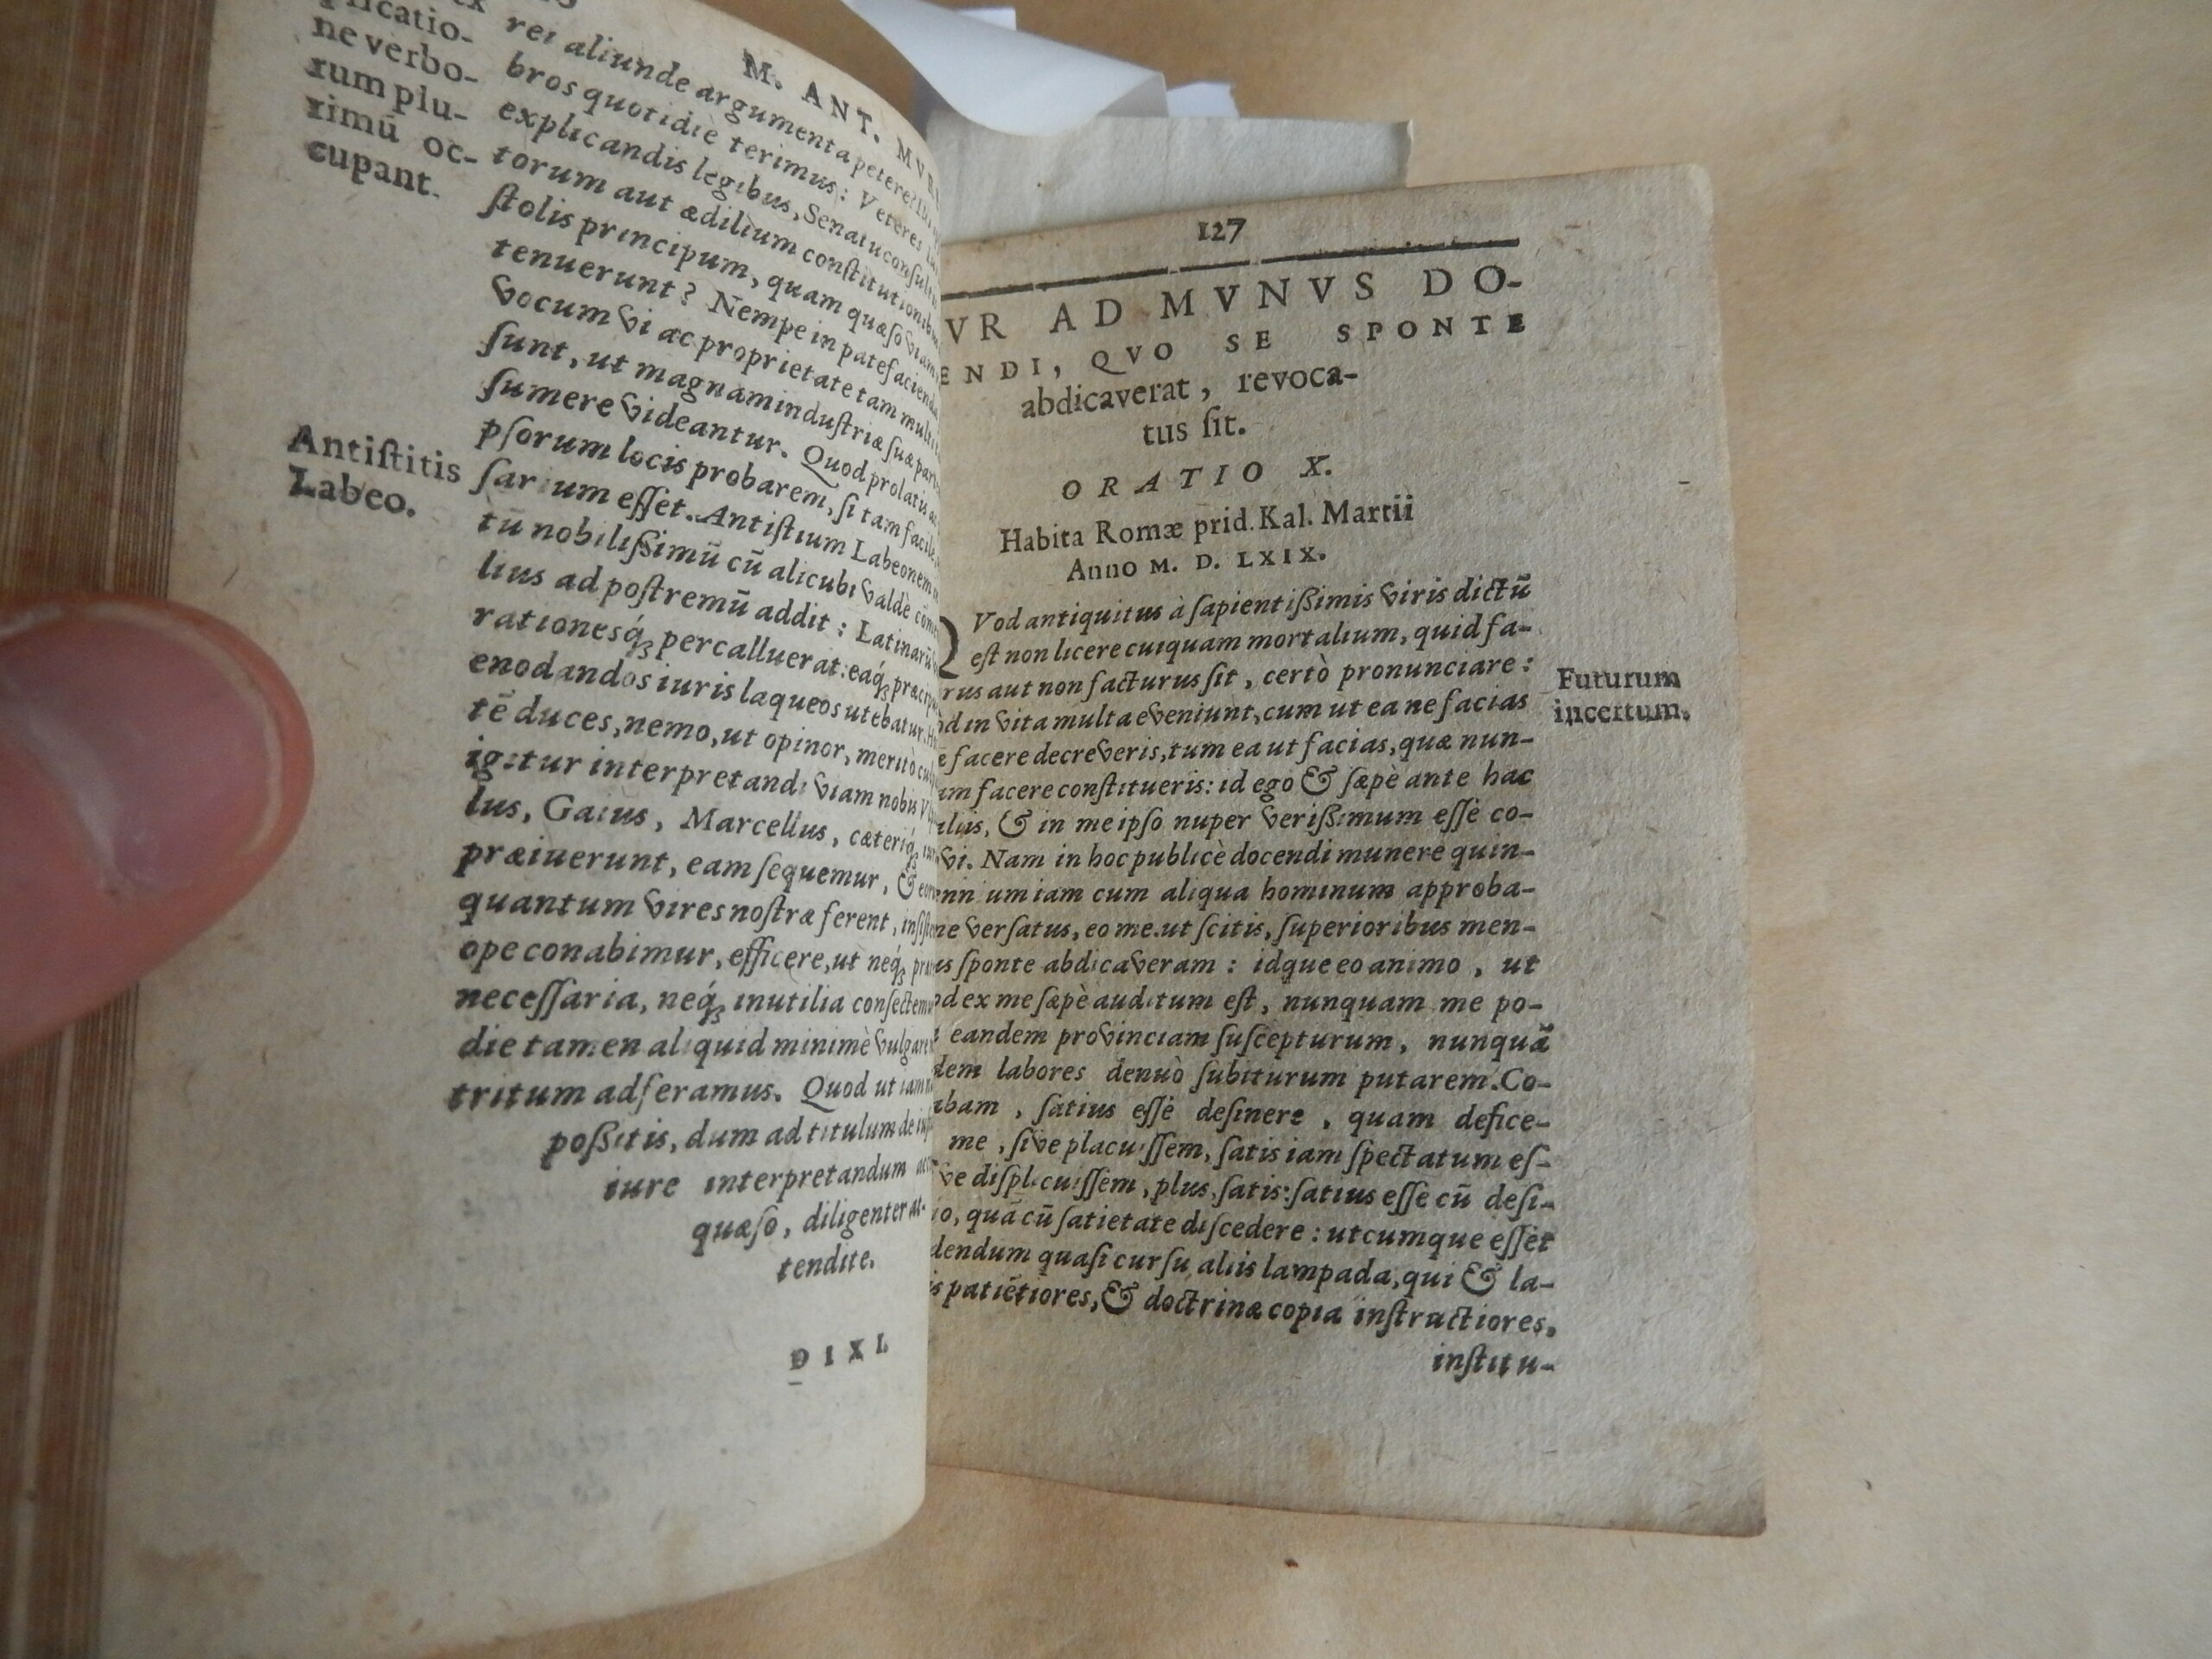 M. ANT. MVRE
plicatio-
ne verbo-
rum plu-
rimū oc-
cupant.
rei aliunde argumenta petere?
bros quotidiè terimus: Veteres
explicandis legibus, Senatuconsultis
torum aut ædilium constitutionibus
stolis principum, quam quæso viam
tenuerunt? Nempe in patefacienda
vocum vi ac proprietate tam multi
sunt, ut magnam industriæ suæ partem
sumere videantur. Quod prolatis
psorum locis probarem, si tam facile
sarium esset. Antistium Labeonem
Antistitis
Labeo.
tū nobilißimū cū alicubi valdè
lius ad postremū addit: Latinarū
rationesq́; percalluerat: eaq́; præcipuè
enodandos iuris laqueos utebatur.
tē duces, nemo, ut opinor, meritò
igitur interpretandi viam nobis
lus, Gaius, Marcellus, cæteriq́;
præiuerunt, eam sequemur, &
quantum vires nostræ ferent,
ope conabimur, efficere, ut neq́;
necessaria, neq́; inutilia consectemur
die tamen aliquid minimè vulgare
tritum adferamus. Quod ut iam
poßitis, dum ad titulum de
iure interpretandum
quæso, diligenter at-
tendite.
DIXI.
127
VR AD MVNVS DO-
ENDI, QVO SE SPONTE
abdicaverat, revoca-
tus sit.
ORATIO X.
Habita Romæ prid. Kal. Martii
Anno M. D. LXIX.
QVod antiquitus à sapientißimis viris dictū
est non licere cuiquam mortalium, quid fa-
rus aut non facturus sit, certò pronunciare:
od in vita multa eveniunt, cum ut ea ne facias
e facere decreveris, tum ea ut facias, quæ nun-
am facere constitueris: id ego & sæpè ante hac
aliis, & in me ipso nuper verißimum esse co-
vi. Nam in hoc publicè docendi munere quin-
enn ium iam cum aliqua hominum approba-
ne versatus, eo me. ut scitis, superioribus men-
us sponte abdicaveram: idque eo animo, ut
od ex me sæpè auditum est, nunquam me po-
eandem provinciam suscepturum, nunquā
dem labores denuò subiturum putarem. Co-
abam, satius esse desinere, quam defice-
me, sive placuissem, satis iam spectatum es-
ve displicuissem, plus satis: satius esse cū desi-
io, quā cū satietate discedere: utcumque esset
dendum quasi cursu aliis lampada, qui & la-
is patiētiores, & doctrinæ copia instructiores,
institu-
Futurum
incertum.